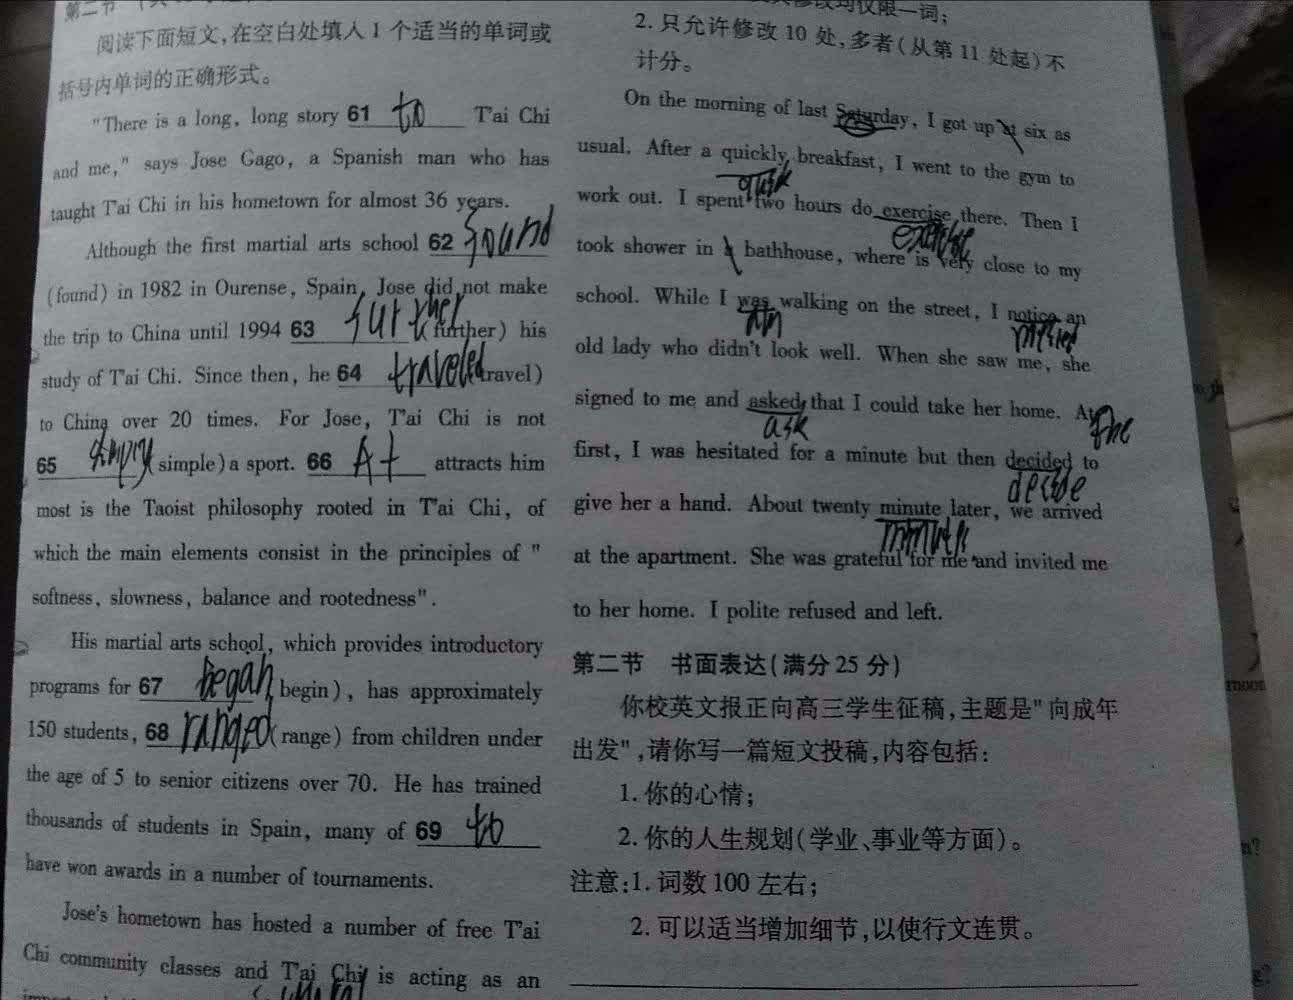 第二节
阅读下面短文,在空白处填入1个适当的单词或
括号内单词的正确形式。
"There is a long, long story 61 to T'ai Chi
and me," says Jose Gago, a Spanish man who has
taught T'ai Chi in his hometown for almost 36 years.
Although the first martial arts school 62 found
(found) in 1982 in Ourense, Spain, Jose did not make
the trip to China until 1994 63 further (further) his
study of T'ai Chi. Since then, he 64 traveled (travel)
to China over 20 times. For Jose, T'ai Chi is not
65 simply (simple) a sport. 66 At attracts him
most is the Taoist philosophy rooted in T'ai Chi, of
which the main elements consist in the principles of "
softness, slowness, balance and rootedness".
His martial arts school, which provides introductory
programs for 67 began (begin), has approximately
150 students, 68 ranged (range) from children under
the age of 5 to senior citizens over 70. He has trained
thousands of students in Spain, many of 69 to
have won awards in a number of tournaments.
Jose's hometown has hosted a number of free T'ai
Chi community classes and T'ai Chi is acting as an
仅限一词;
2. 只允许修改 10 处,多者(从第 11 处起)不
计分。
On the morning of last Saturday, I got up at six as
usual. After a quickly breakfast, I went to the gym to
quick
work out. I spent two hours do exercise there. Then I
took shower in a bathhouse, where is very close to my
school. While I was walking on the street, I notice an
am noticed
old lady who didn't look well. When she saw me, she
signed to me and asked that I could take her home. At
ask the
first, I was hesitated for a minute but then decided to
decide
give her a hand. About twenty minute later, we arrived
at the apartment. She was grateful for me and invited me
to her home. I polite refused and left.
第二节 书面表达(满分 25 分)
你校英文报正向高三学生征稿,主题是"向成年
出发",请你写一篇短文投稿,内容包括:
1. 你的心情;
2. 你的人生规划(学业、事业等方面)。
注意:1. 词数 100 左右;
2. 可以适当增加细节,以使行文连贯。